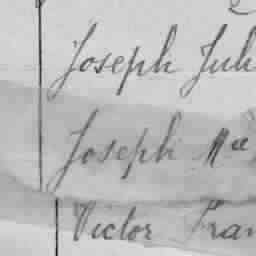 Joseph Juh
Joseph Mce
Victor Fran